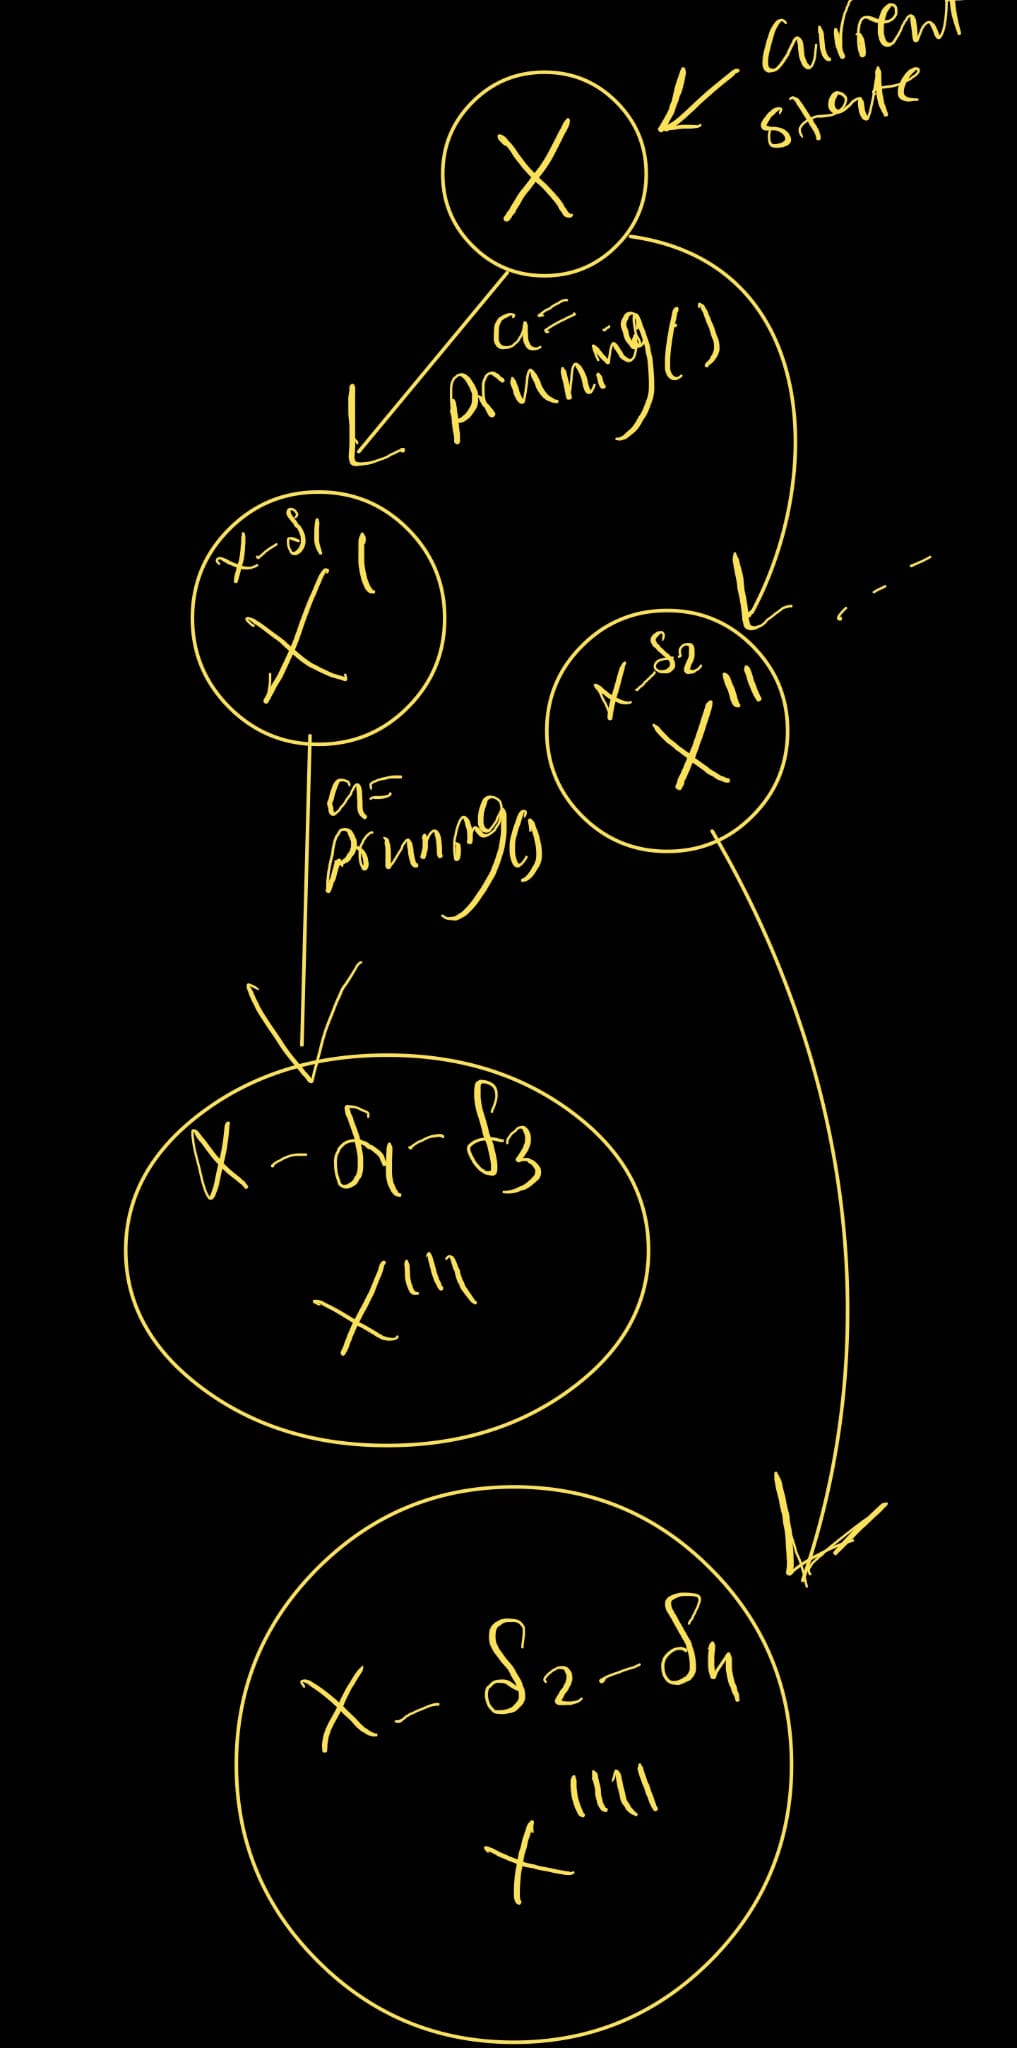 current
state
X
a=
pruning()
X-δ1
X'
X-δ2
X''
a=
prunning()
X-δ1-δ3
X'''
X-δ2-δ4
X''''